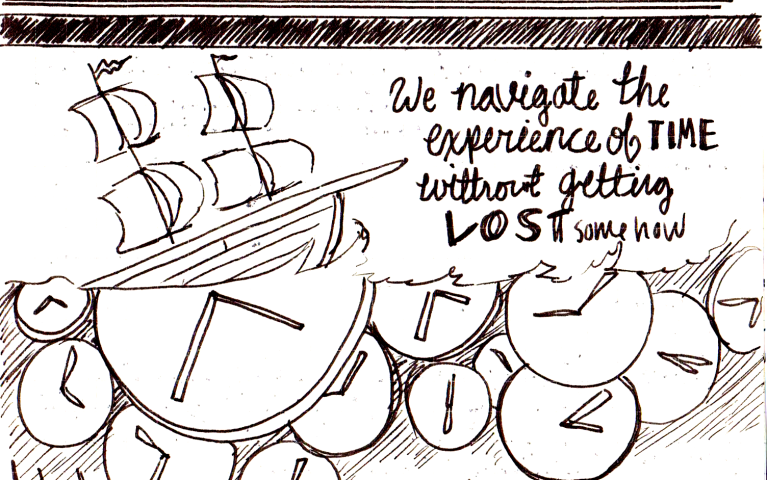 We navigate the
experience of TIME
without getting
LOST somehow